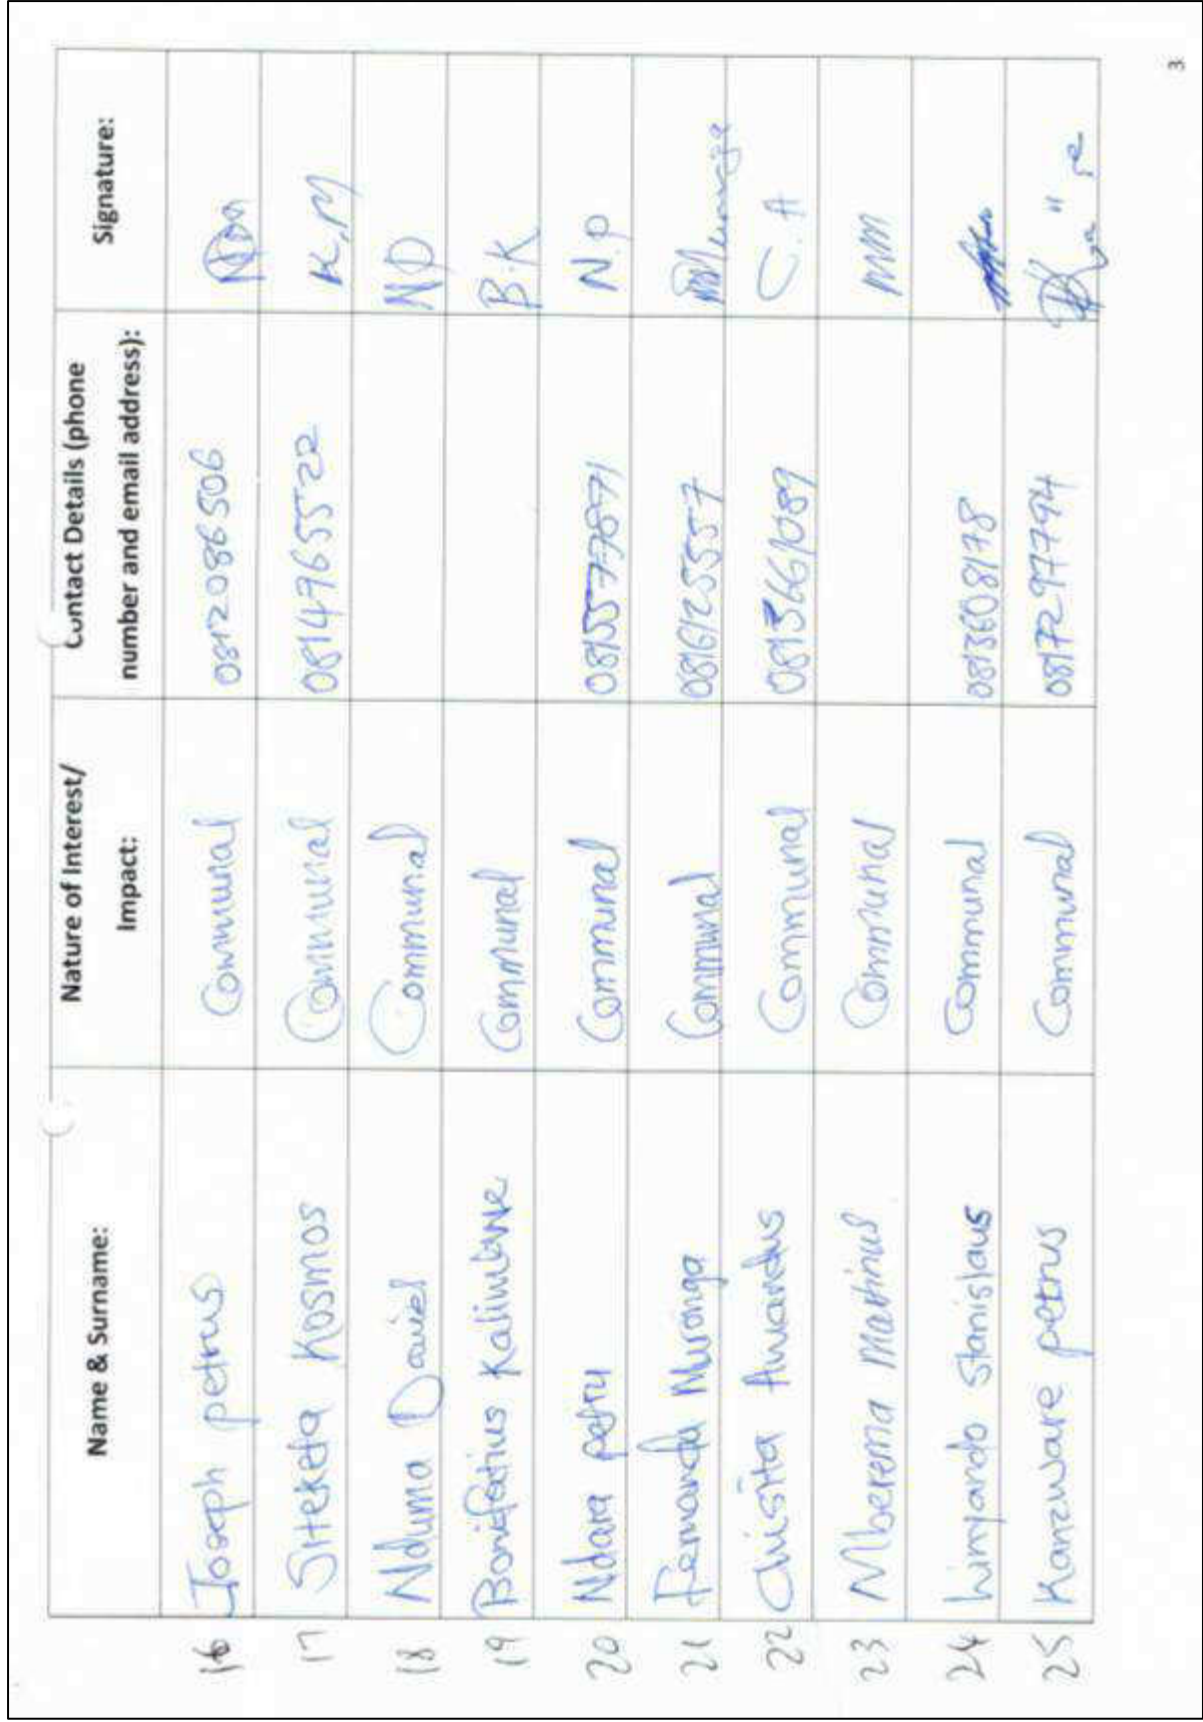 Name & Surname: Nature of Interest/ Impact: Contact Details (phone number and email address): Signature:
16 Joseph petrus Communal 0812086506
17 Siteketa Kosmos Communal 0814765522 K.M
18 Nduma Daniel Communal ND
19 Bonifatius Kalimbwe Communal B.K
20 Ndara petru Communal N.P
21 Fernanda Muronga Communal 0816125557
22 Chisita Amandus Communal 0813661089 C.A
23 Mberema Martinus Communal MM
24 Linyando Stanislaus Communal 0813608178
25 Kanzware petrus Communal 0817297794
3